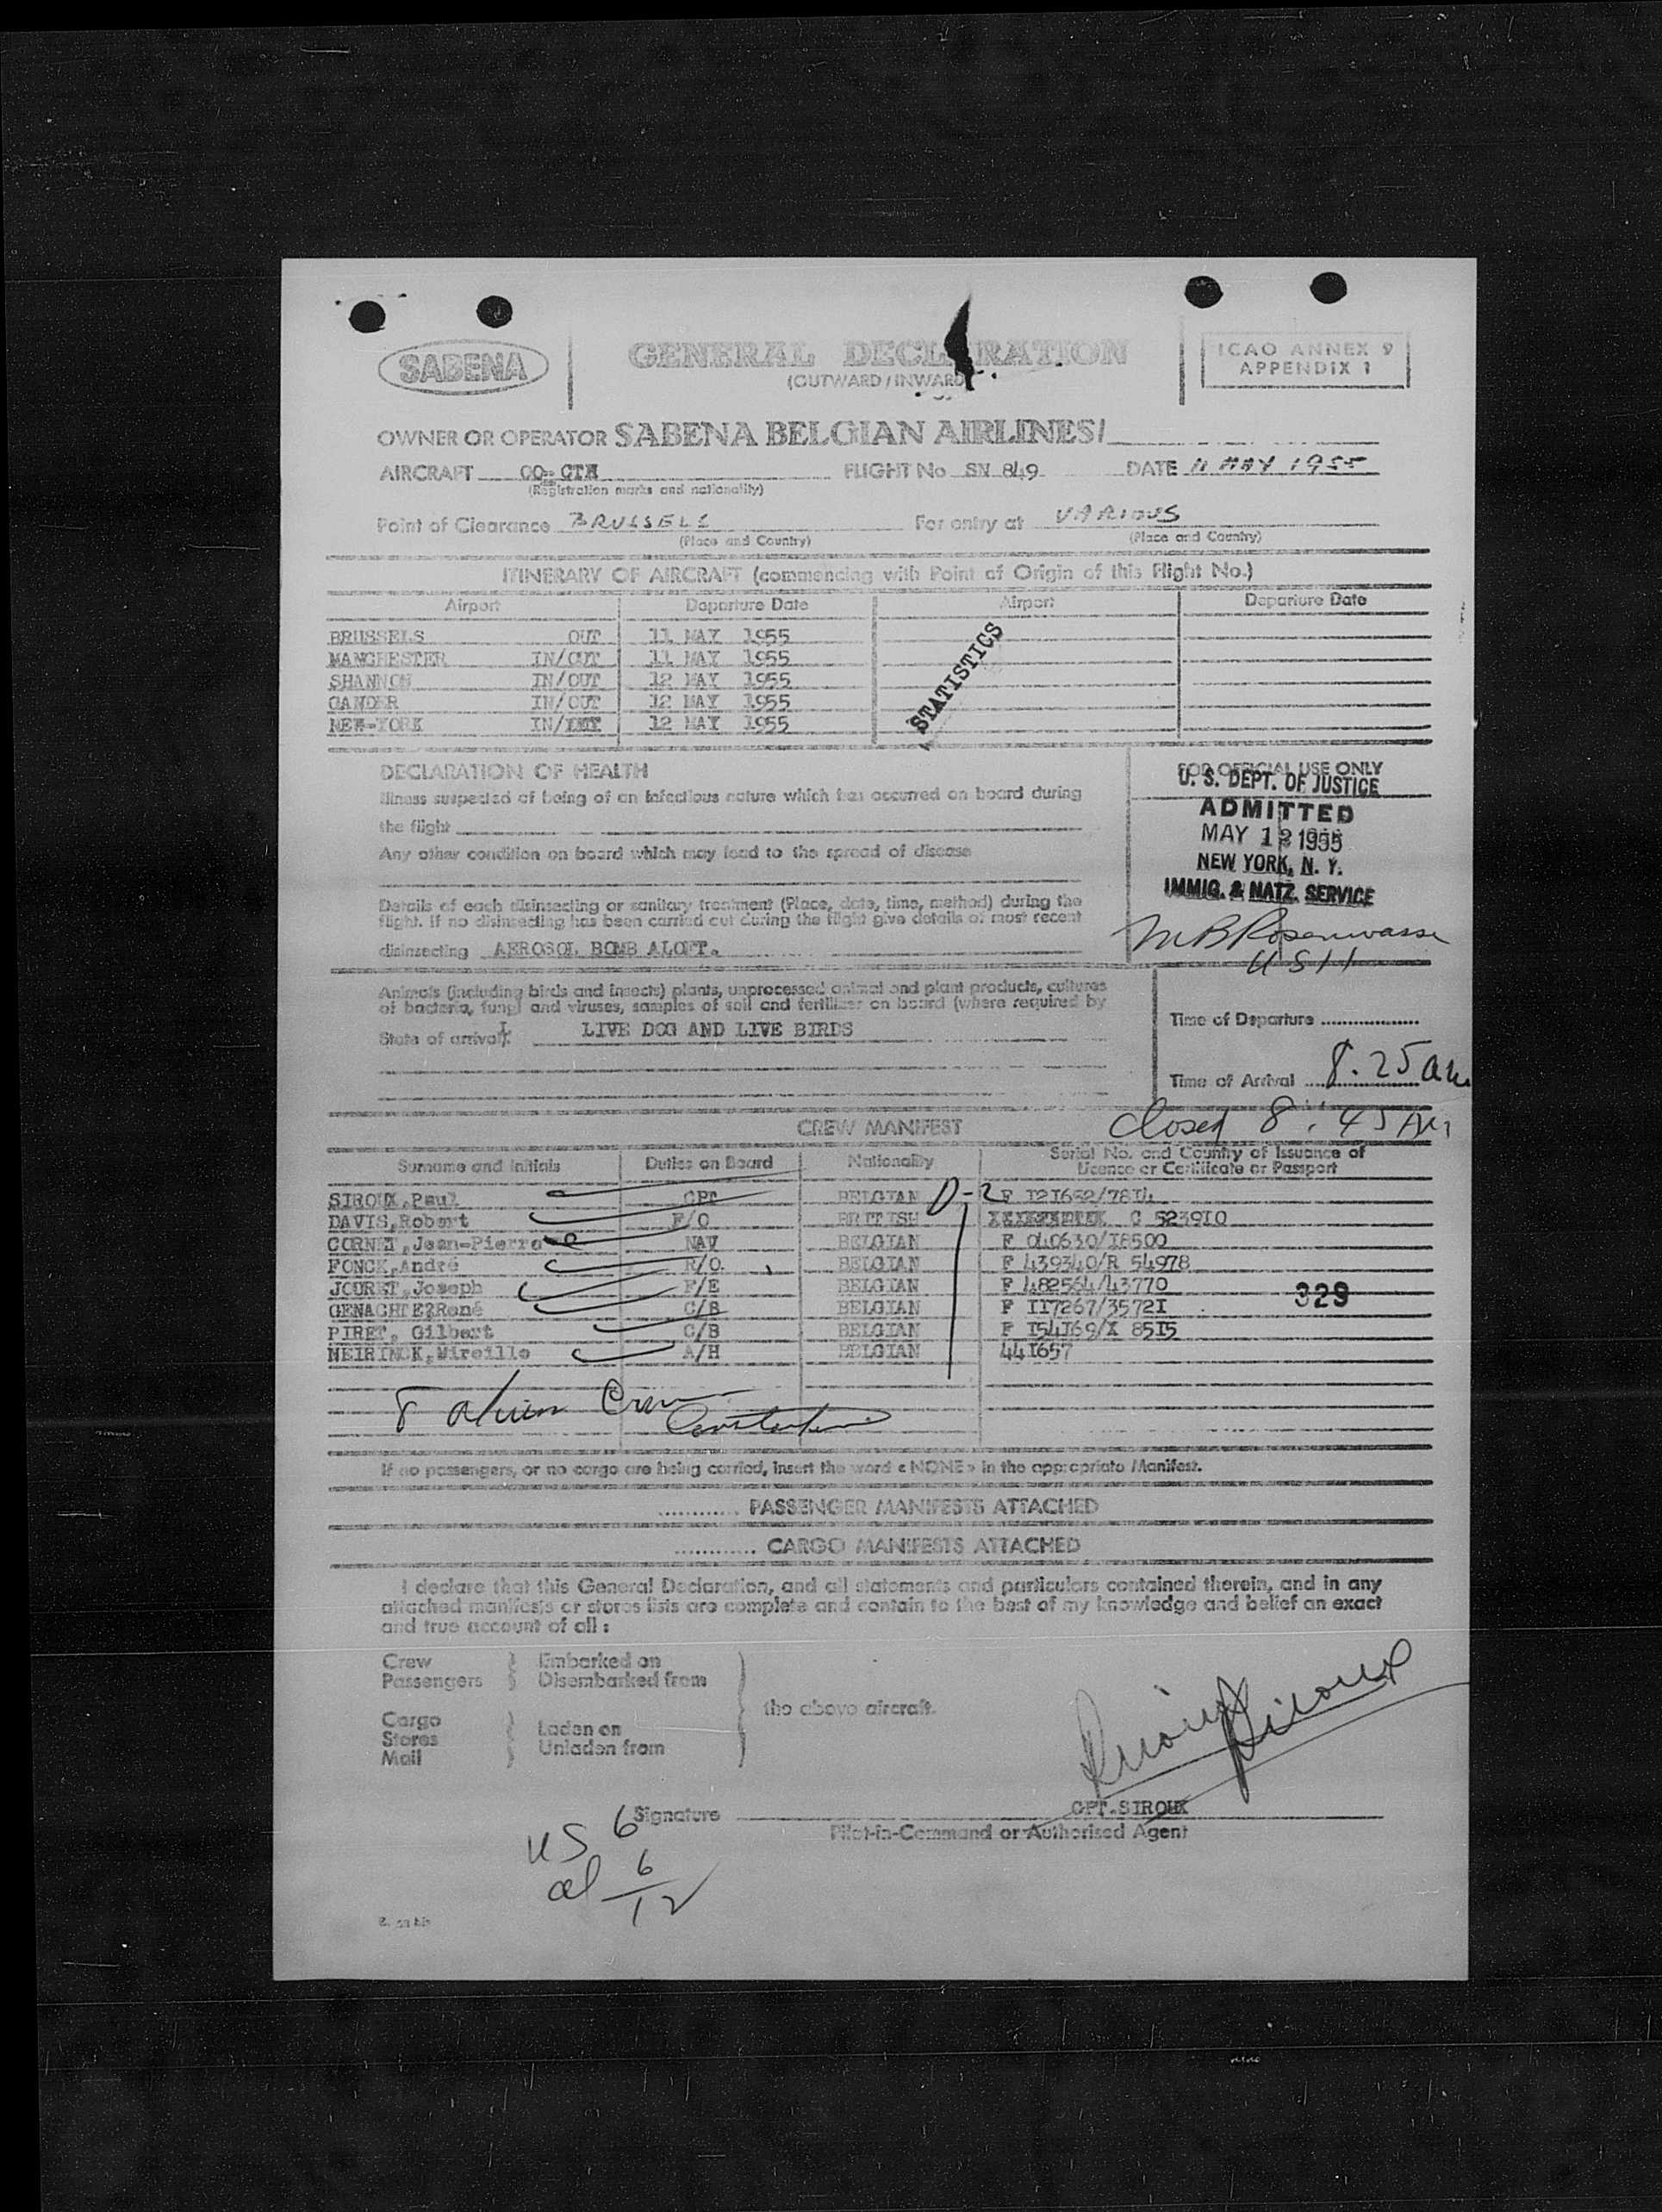 SABENA
GENERAL DECLARATION
(OUTWARD/INWARD)
ICAO ANNEX 9
APPENDIX 1
OWNER OR OPERATOR SABENA BELGIAN AIRLINES/
AIRCRAFT OO-CTH FLIGHT No SN 849 DATE 11 MAY 1955
(Registration marks and nationality)
Point of Clearance BRUSSELS For entry at VARIOUS
(Place and Country) (Place and Country)
ITINERARY OF AIRCRAFT (commencing with Point of Origin of this Flight No.)
Airport Departure Date Airport Departure Date
BRUSSELS OUT 11 MAY 1955
MANCHESTER IN/OUT 11 MAY 1955
SHANNON IN/OUT 12 MAY 1955
GANDER IN/OUT 12 MAY 1955
NEW-YORK IN/ 12 MAY 1955
STATISTICS
DECLARATION OF HEALTH
Illness suspected of being of an infectious nature which has occurred on board during
the flight
Any other condition on board which may lead to the spread of disease
Details of each disinsecting or sanitary treatment (Place, date, time, method) during the
flight. If no disinsecting has been carried out during the flight give details of most recent
disinsecting AEROSOL BOMB ALOFT.
FOR OFFICIAL USE ONLY
U. S. DEPT. OF JUSTICE
ADMITTED
MAY 12 1955
NEW YORK, N. Y.
IMMIG. & NATZ. SERVICE
Animals (including birds and insects) plants, unprocessed animal and plant products, cultures
of bacteria, fungi and viruses, samples of soil and fertilizer on board (where required by
State of arrival). LIVE DOG AND LIVE BIRDS
Time of Departure
Time of Arrival 8.25 am
Closed 8:45 AM
CREW MANIFEST
Surname and Initials Duties on Board Nationality Serial No. and Country of Issuance of
Licence or Certificate or Passport
SIROUX, Paul CPT BELGIAN D-2 F 121632/7814
DAVIS, Robert F/O BRITISH C 523910
CORNET, Jean-Pierre NAV BELGIAN F 040630/18500
FONCK, André R/O BELGIAN F 439340/R 54978
JOURET, Joseph F/E BELGIAN F 482564/43770
GENACHTE, René C/S BELGIAN F 117267/35721
PIRET, Gilbert C/S BELGIAN F 154169/X 8515
MEIRINCK, Mireille A/H BELGIAN 441657
329
8 alien Crew
If no passengers, or no cargo are being carried, insert the word « NONE » in the appropriate Manifest.
............ PASSENGER MANIFESTS ATTACHED
............ CARGO MANIFESTS ATTACHED
I declare that this General Declaration, and all statements and particulars contained therein, and in any
attached manifests or stores lists are complete and contain to the best of my knowledge and belief an exact
and true account of all :
Crew Embarked on
Passengers Disembarked from
the above aircraft.
Cargo
Stores Laden on
Mail Unladen from
Siroux
Signature
CPT. SIROUX
Pilot-in-Command or Authorised Agent
US 6
al 6
12